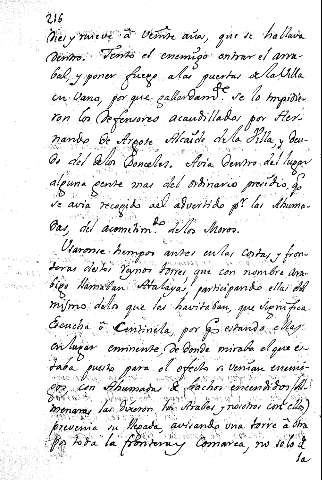 216
diez y nueve a veinte años, que se hallava
dentro. Tentó el enemigo entrar el arra
bal, y poner fuego a las puertas de la Villa
en vano, por que gallardamte. se lo impidie
ron los defensores acaudillados por Her
nando de Argote Alcaide de la Villa, y deu
do del de los Donceles. Avia dentro del lugar
alguna gente mas del ordinario presidio, q
se avia recogido alli advertido pr. las Ahuma
das, del acometimto. de los Moros.
Usaronse tiempos antes en las costas y fron
teras destos Reynos torres que con nombre Ara
bigo llamaban Atalayas, participando ellas del
mismo de los que las havitaban, que significa
Escucha ó Centinela, por q estando ellas
en lugar eminente, de donde miraba el que es
taba puesto para el efecto si venian enemi
gos, con Ahumadas, ó hachos encendidos (Al
menaras las dixeron los Arabes y nosotros con ellos)
prevenia su llegada, avisando una torre a otra
por toda la frontera y Comarca, no solo de
la